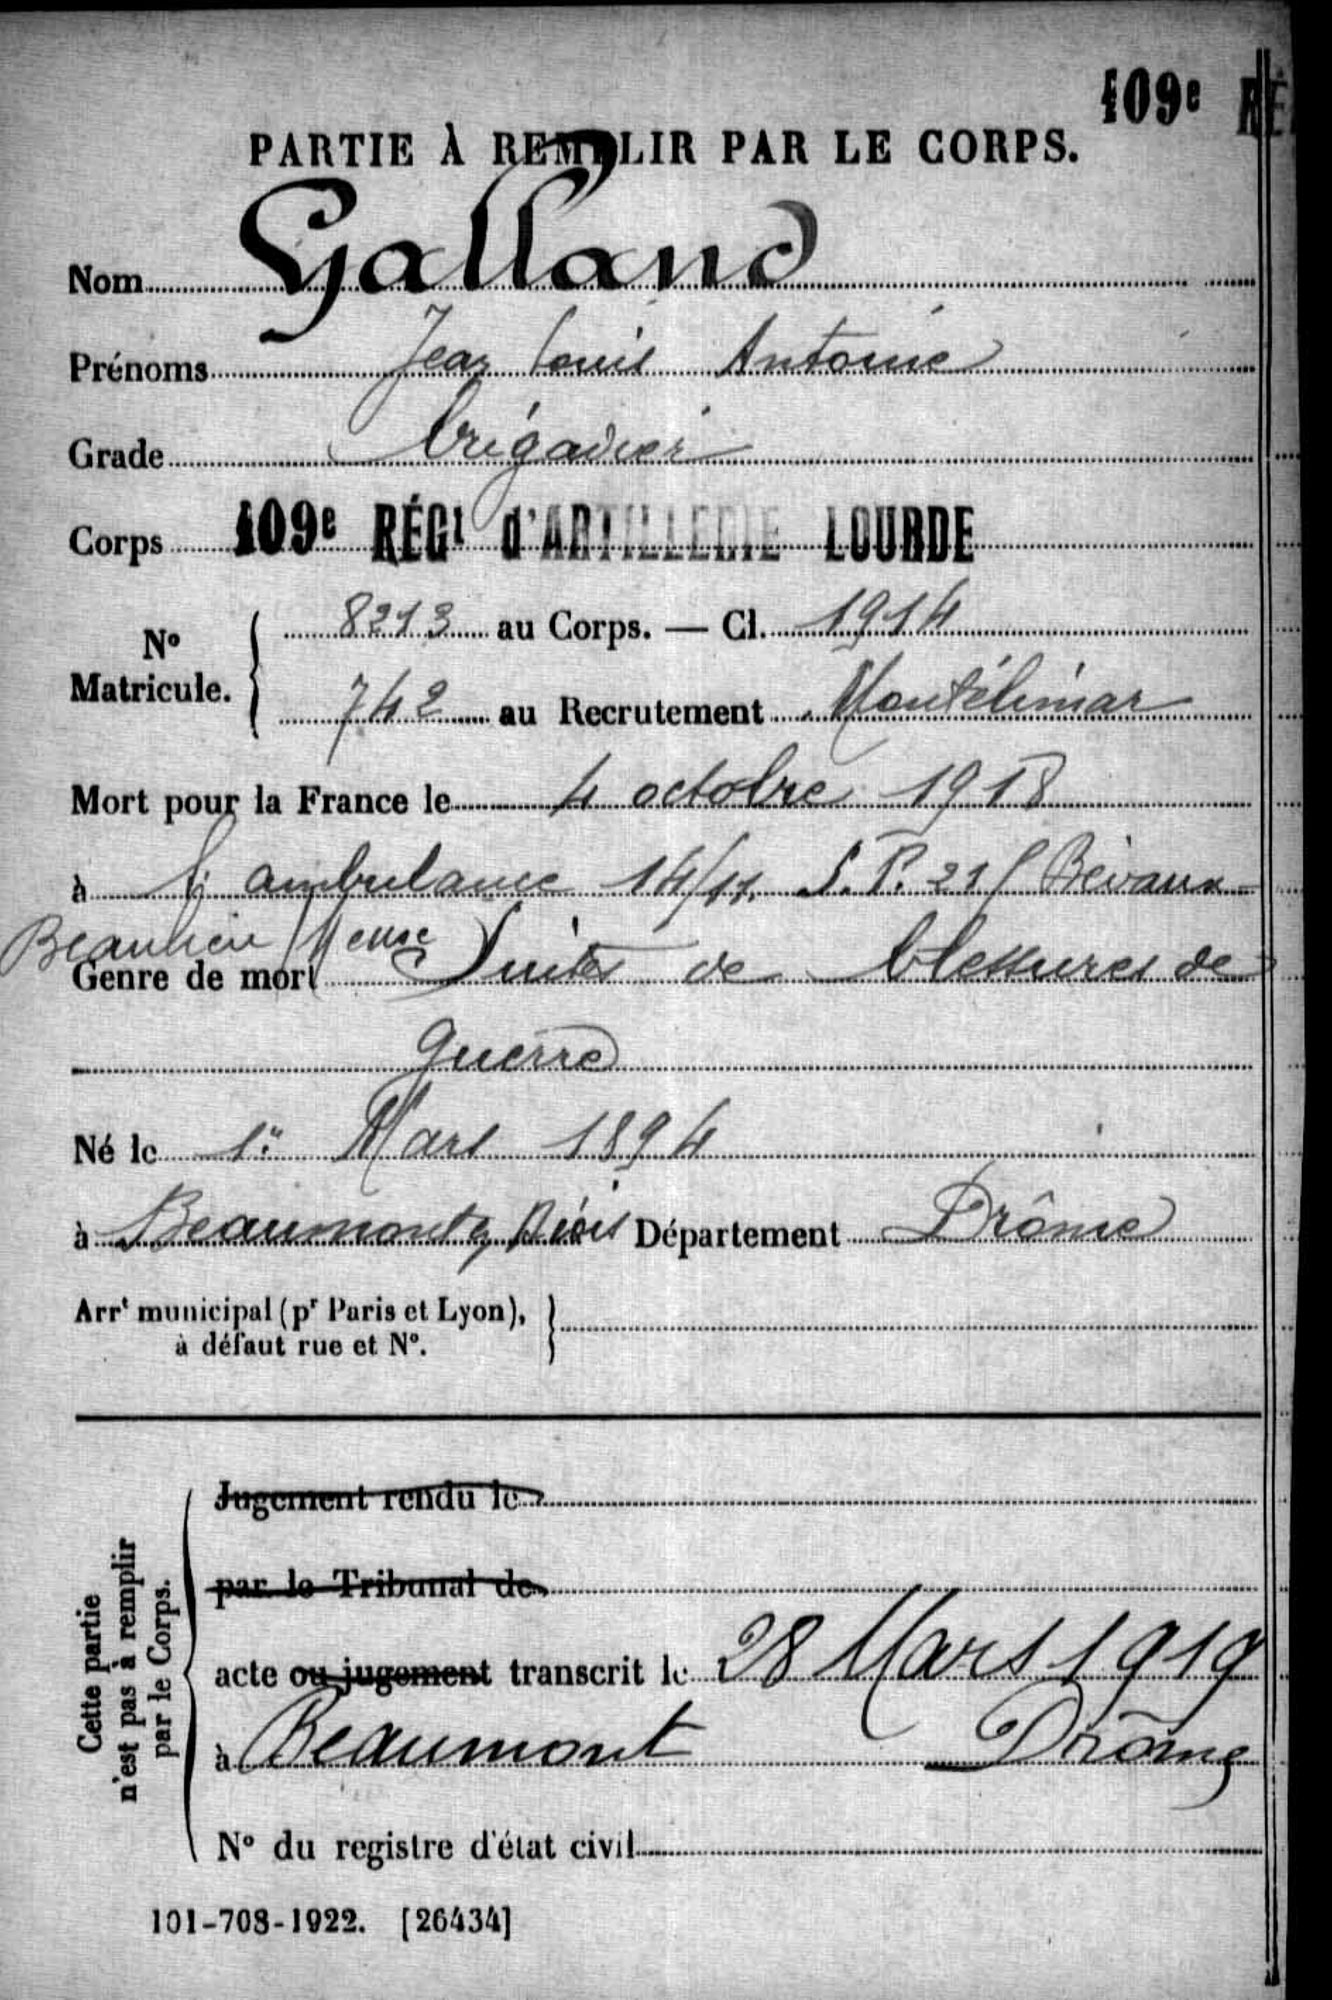 109e RÉ
PARTIE À REMPLIR PAR LE CORPS.
Nom Galland
Prénoms Jean Louis Antoine
Grade brigadier
Corps 109e RÉGt d'ARTILLERIE LOURDE
No Matricule. 8213 au Corps. — Cl. 1914
742 au Recrutement Montélimar
Mort pour la France le 4 octobre 1918
à l'ambulance 14/11. S.P. 215 Bévaux
Beaulieu Meuse
Genre de mort Suites de blessures de
guerre
Né le 1er Mars 1894
à Beaumont Département Drôme
Arrt municipal (pr Paris et Lyon),
à défaut rue et No.
Cette partie
n'est pas à remplir
par le Corps.
Jugement rendu le
par le Tribunal de
acte ou jugement transcrit le 28 Mars 1919
à Beaumont Drôme
No du registre d'état civil
101-708-1922. [26434]